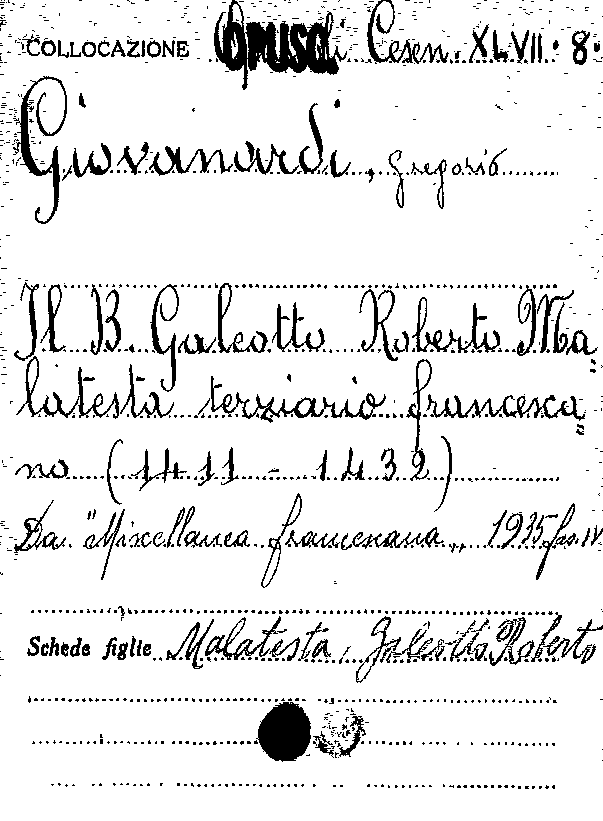 COLLOCAZIONE Opusc. di Cesen. XLVII. 8.
Giovanardi, Gregorio
Il B. Galeotto Roberto Ma
latesta terziario francesca
no (1411 - 1432)
Da "Miscellanea francescana„ 1935 fas. IV
Schede figlie Malatesta, Galeotto Roberto